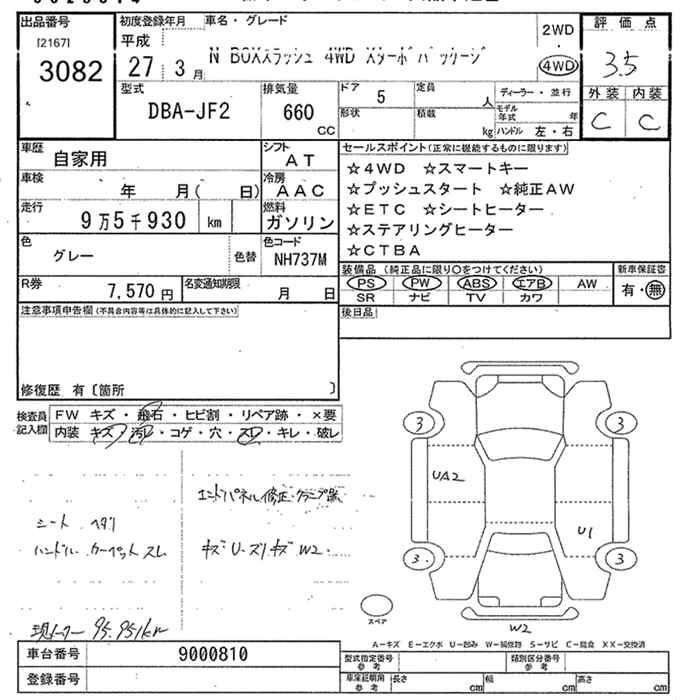 出品番号 初度登録年月 車名・グレード 2WD 評価点
[2167] 平成
3082 27 3月 N BOXスラッシュ 4WD Xターボパッケージ 4WD 3.5
型式 排気量 ドア 5 定員 人 ディーラー・並行 外装 内装
DBA-JF2 660 CC 形状 積載 kg モデル年式 年 C C
ハンドル 左・右
車歴 自家用 シフト AT セールスポイント(正常に機能するものに限ります)
車検 年 月( 日) 冷房 AAC ☆4WD ☆スマートキー
走行 9万5千930 km 燃料 ガソリン ☆プッシュスタート ☆純正AW
☆ETC ☆シートヒーター
☆ステアリングヒーター
☆CTBA
色 グレー 色替 色コード NH737M
装備品(純正品に限り○をつけてください) 新車保証書
PS PW ABS エアB AW 有・無
SR ナビ TV カワ
R券 7,570円 名変通知期限 月 日
注意事項申告欄(不具合内容等は具体的に記入して下さい) 後日品
修復歴 有〔箇所 〕
検査員記入欄 FW キズ・飛石・ヒビ割・リペア跡・×要
内装 キズ・汚れ・コゲ・穴・スレ・キレ・破レ
3 3
UA2
エンドパネル修正・クランプ跡
シート ヘタリ
U1
ハンドル カーペット スレ
キズ U・ズリキズ W2.
3. 3
スペア
現メーター 95.951km
W2
A-キズ E-エクボ U-凹み W-補修跡 S-サビ C-腐食 XX-交換済
車台番号 9000810
型式指定番号 参考 類別区分番号 参考
登録番号
車庫証明用 参考 長さ cm 幅 cm 高さ cm